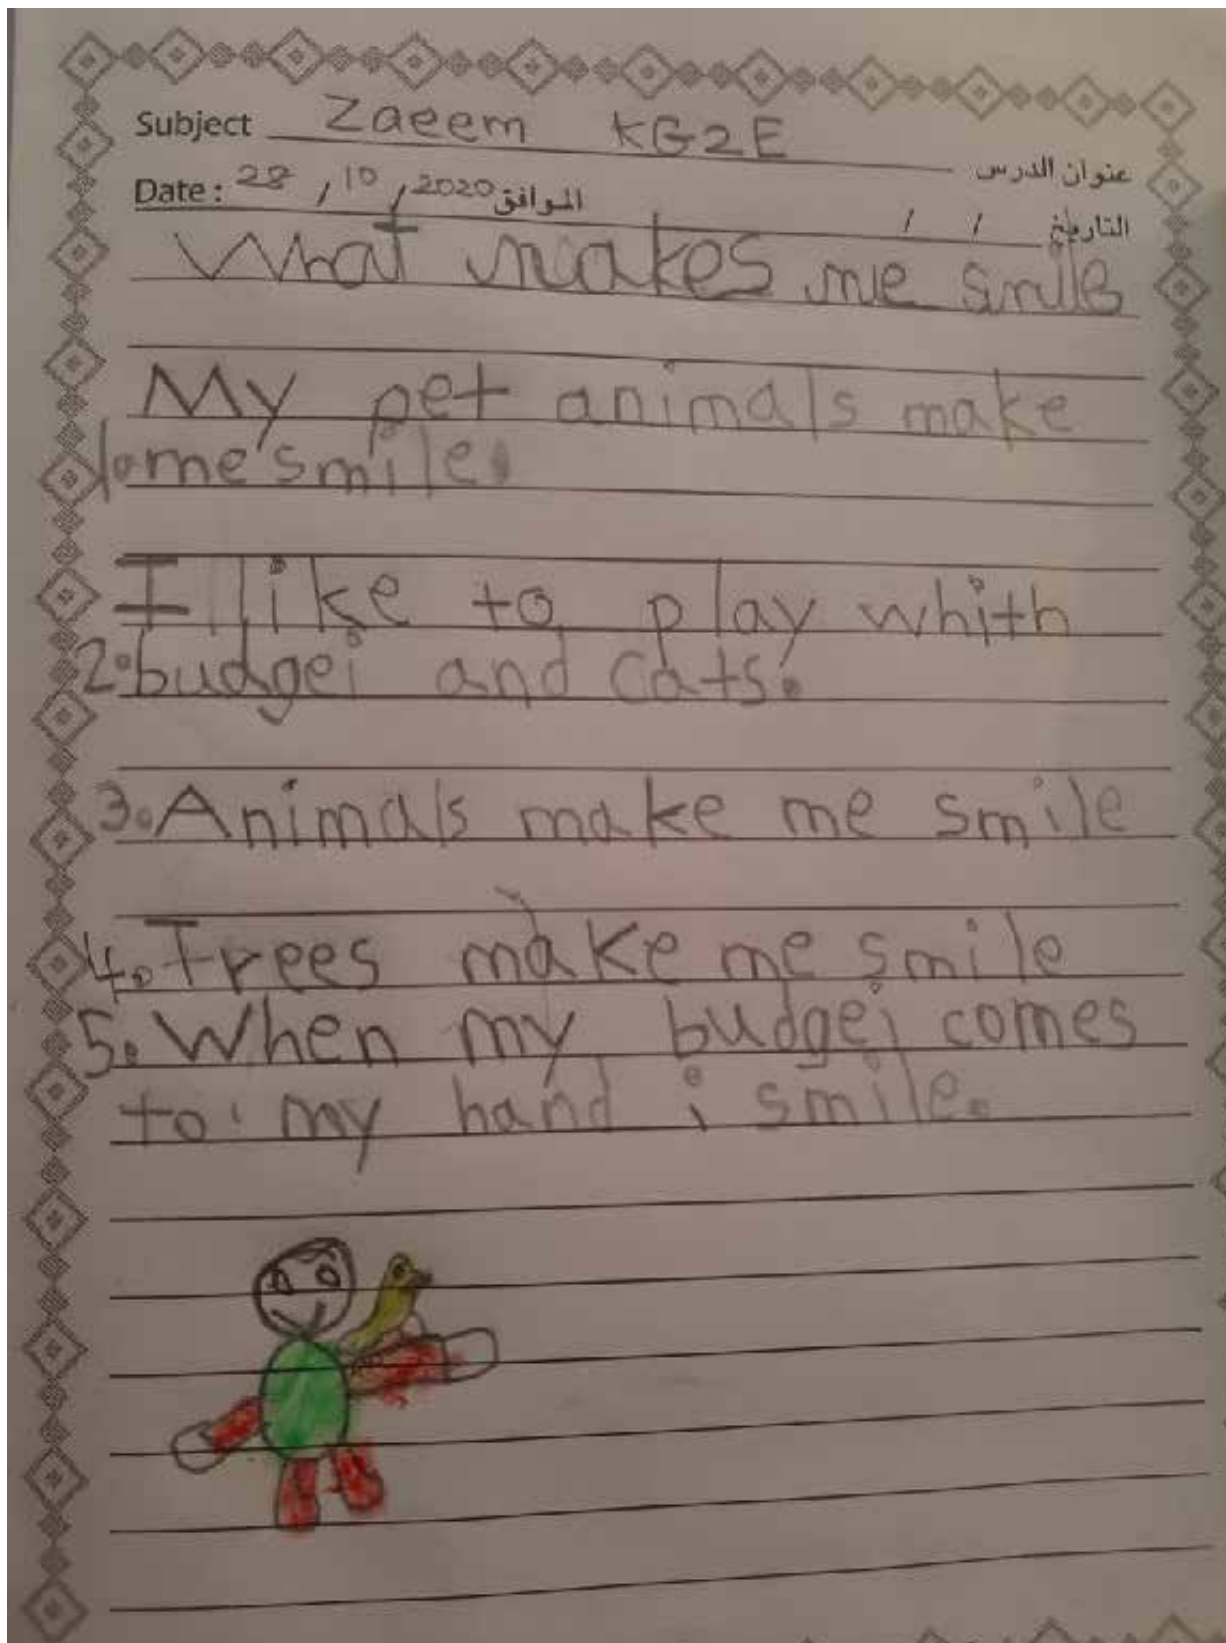 Subject Zaeem KG2E عنوان الدرس
Date: 28 / 10 / 2020 الموافق / / التاريخ
What makes me smile
My pet animals make
1. me smile.
I like to play whith
2. budgei and cats.
3. Animals make me smile
4. Trees make me smile
5. When my budgei comes
to my hand i smile.